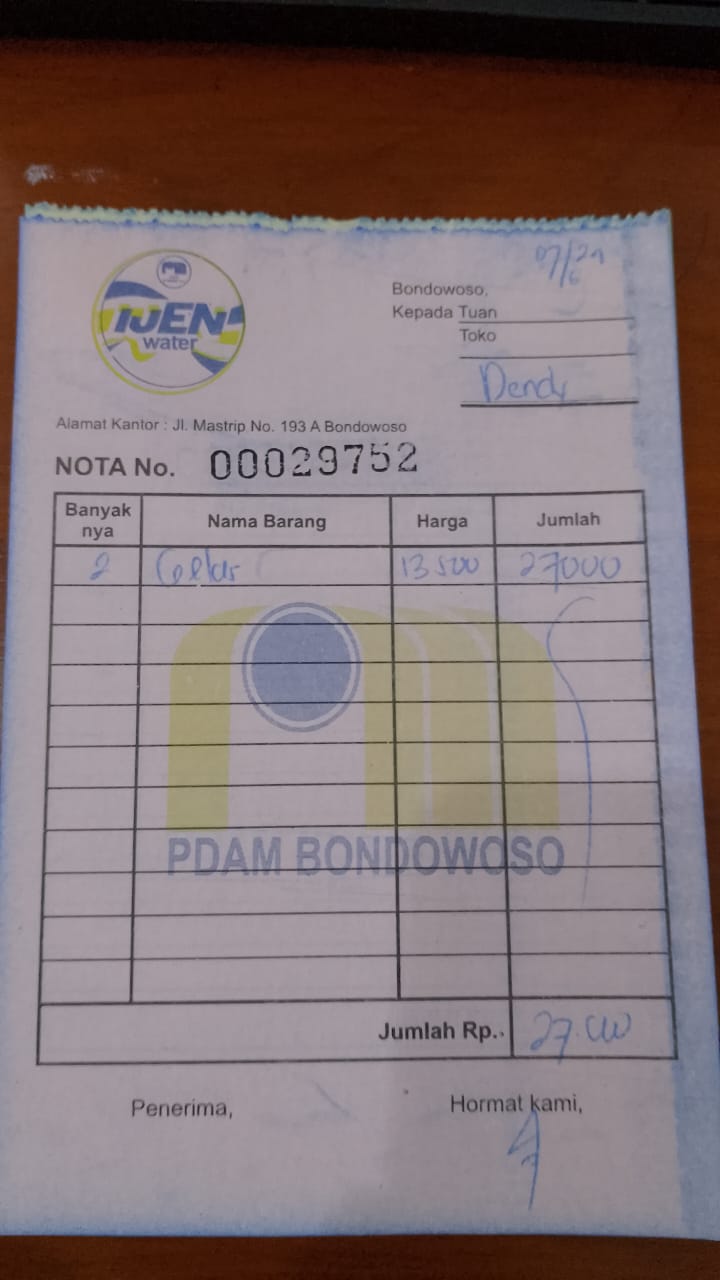 IJEN
water
07/24
6
Bondowoso,
Kepada Tuan
Toko
Dendy
Alamat Kantor : Jl. Mastrip No. 193 A Bondowoso
NOTA No. 00029752
Banyak nya Nama Barang Harga Jumlah
2 Gelas 13500 27000
PDAM BONDOWOSO
Jumlah Rp. 27.000
Penerima, Hormat kami,